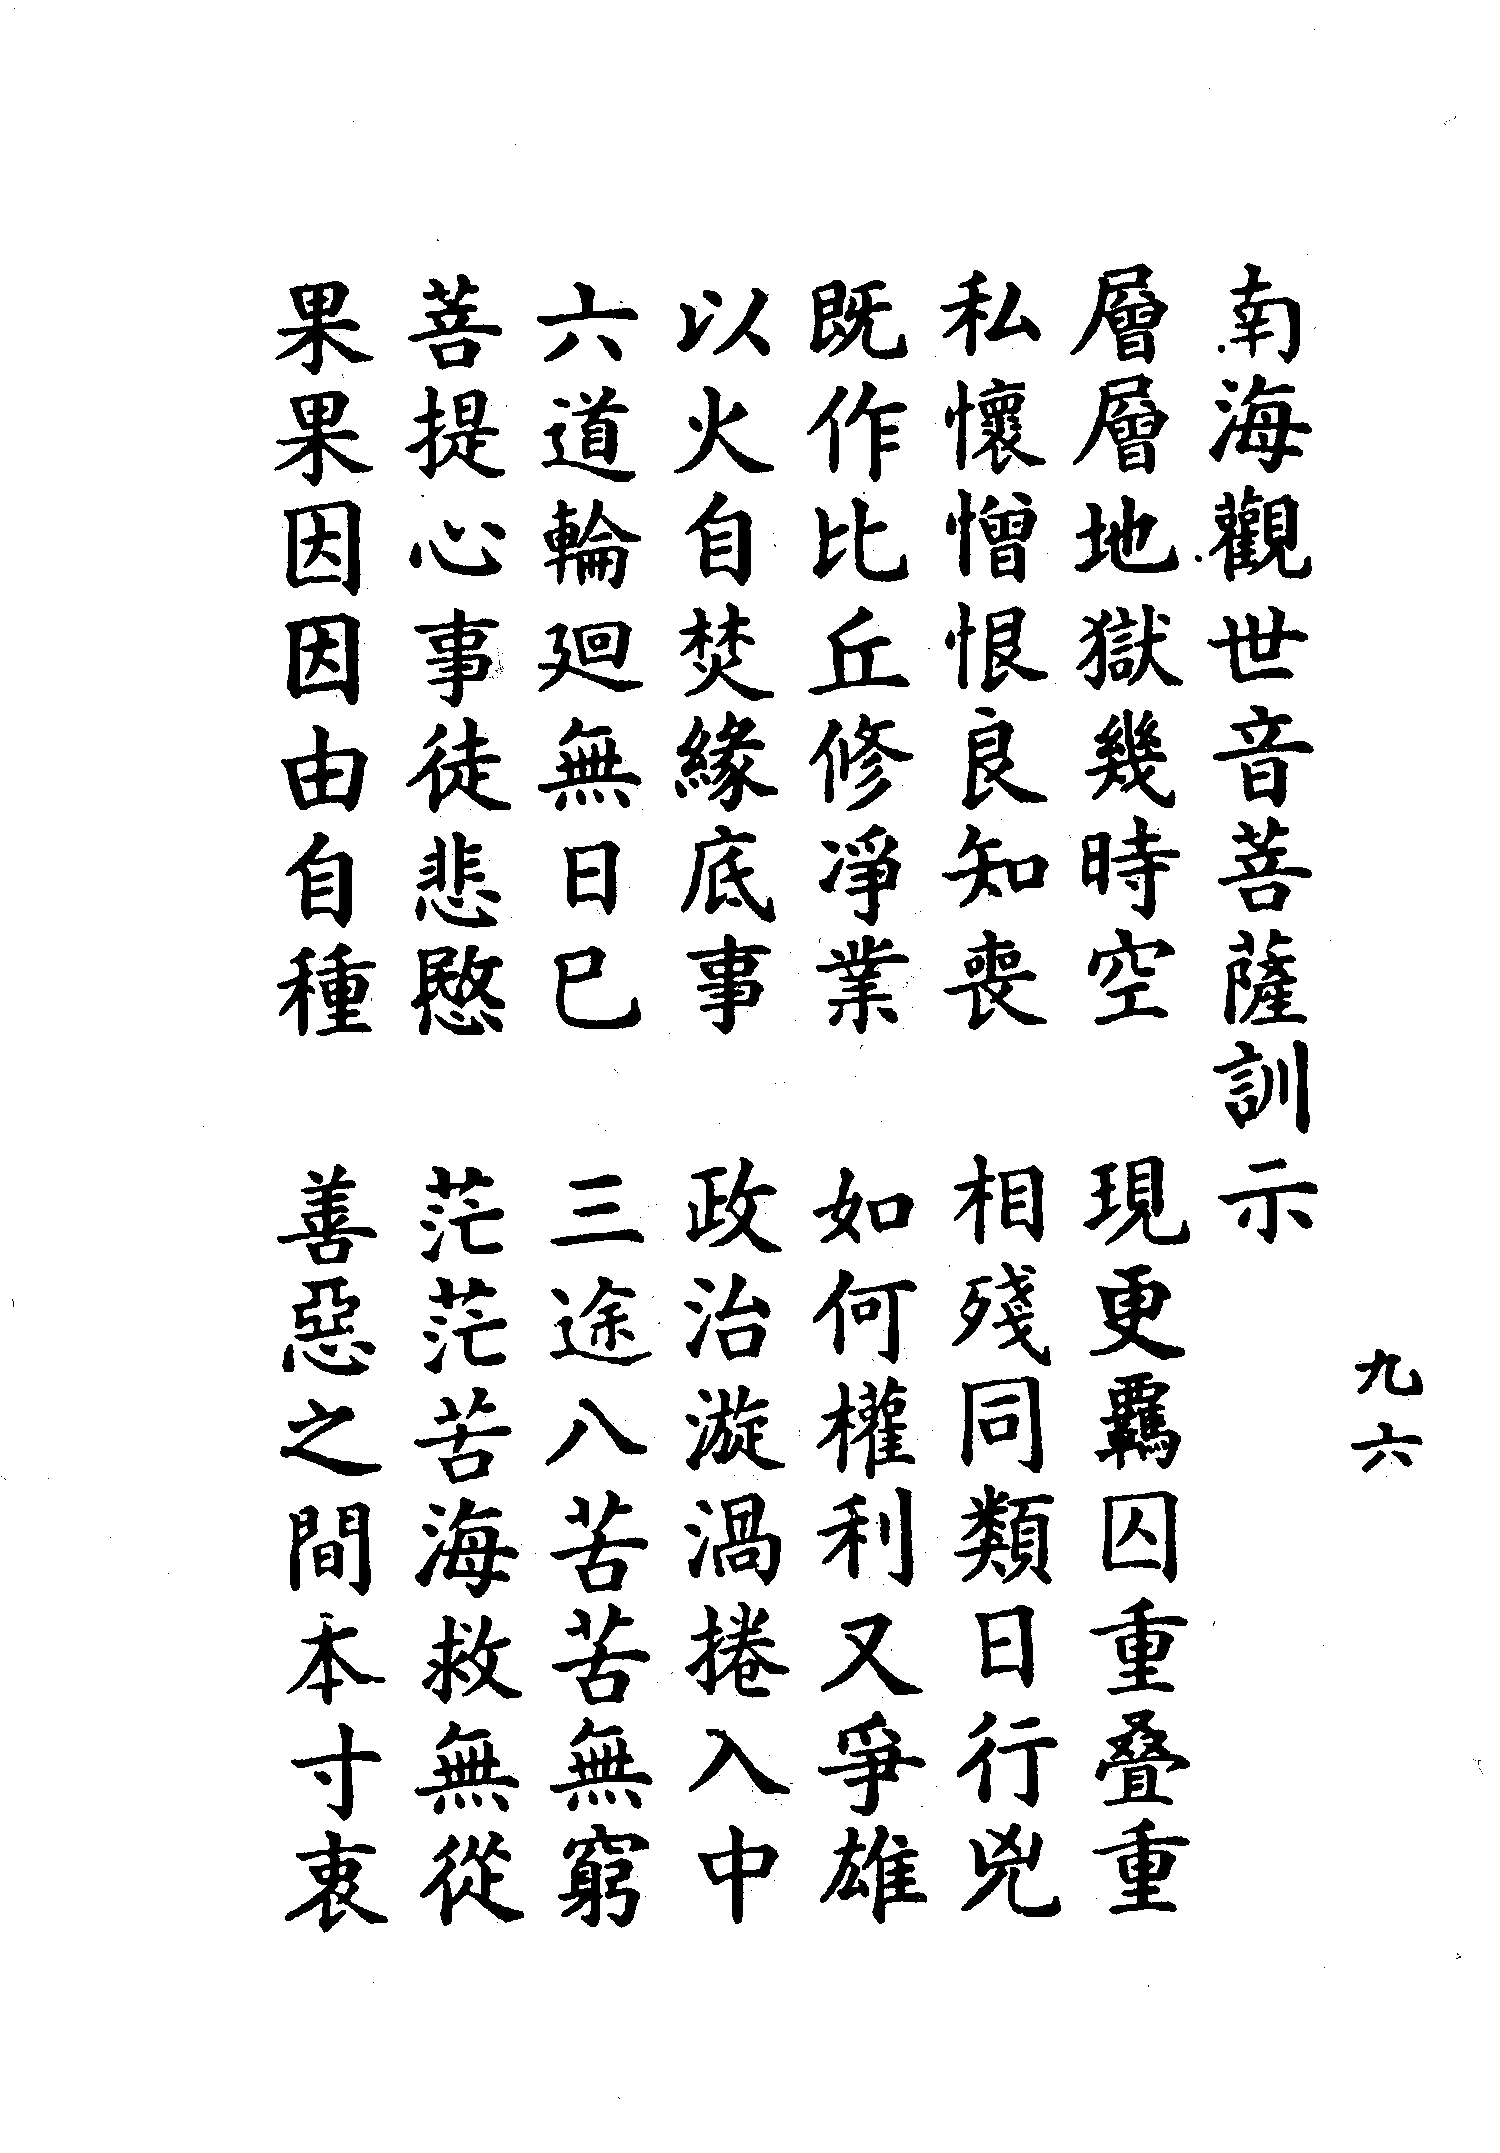 九六
南海觀世音菩薩訓示
層層地獄幾時空　現更羈囚重叠重
私懷憎恨良知喪　相殘同類日行兇
既作比丘修凈業　如何權利又爭雄
以火自焚緣底事　政治漩渦捲入中
六道輪廻無日已　三途八苦苦無窮
菩提心事徒悲愍　茫茫苦海救無從
果果因因由自種　善惡之間本寸衷